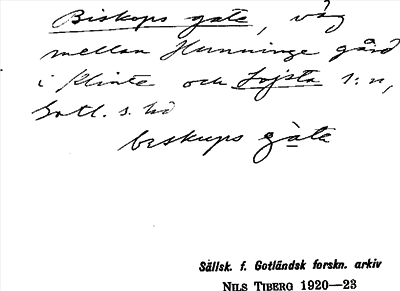 Biskops gate, väg
mellan Hunninge gård
i Klinte och Lojsta s:n,
Gotl. s. hd
biskups gàte
Sällsk. f. Gotländsk forskn. arkiv
NILS TIBERG 1920—23